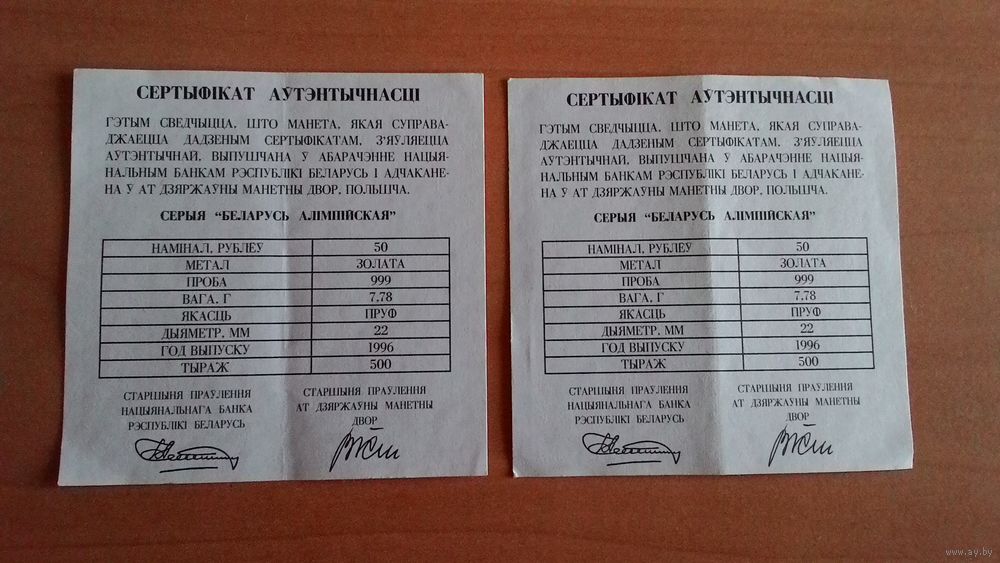 СЕРТЫФІКАТ АЎТЭНТЫЧНАСЦІ
ГЭТЫМ СВЕДЧЫЦЦА, ШТО МАНЕТА, ЯКАЯ СУПРАВА-
ДЖАЕЦЦА ДАДЗЕНЫМ СЕРТЫФІКАТАМ, З'ЯЎЛЯЕЦЦА
АЎТЭНТЫЧНАЙ, ВЫПУШЧАНА Ў АБАРАЧЭННЕ НАЦЫЯ-
НАЛЬНЫМ БАНКАМ РЭСПУБЛІКІ БЕЛАРУСЬ І АДЧАКАНЕ-
НА Ў АТ ДЗЯРЖАУНЫ МАНЕТНЫ ДВОР, ПОЛЬШЧА.
СЕРЫЯ “БЕЛАРУСЬ АЛІМПІЙСКАЯ”
НАМІНАЛ, РУБЛЁЎ 50
МЕТАЛ ЗОЛАТА
ПРОБА 999
ВАГА, Г 7,78
ЯКАСЦЬ ПРУФ
ДЫЯМЕТР, ММ 22
ГОД ВЫПУСКУ 1996
ТЫРАЖ 500
СТАРШЫНЯ ПРАЎЛЕННЯ
НАЦЫЯНАЛЬНАГА БАНКА
РЭСПУБЛІКІ БЕЛАРУСЬ
СТАРШЫНЯ ПРАЎЛЕННЯ
АТ ДЗЯРЖАУНЫ МАНЕТНЫ
ДВОР
СЕРТЫФІКАТ АЎТЭНТЫЧНАСЦІ
ГЭТЫМ СВЕДЧЫЦЦА, ШТО МАНЕТА, ЯКАЯ СУПРАВА-
ДЖАЕЦЦА ДАДЗЕНЫМ СЕРТЫФІКАТАМ, З'ЯЎЛЯЕЦЦА
АЎТЭНТЫЧНАЙ, ВЫПУШЧАНА Ў АБАРАЧЭННЕ НАЦЫЯ-
НАЛЬНЫМ БАНКАМ РЭСПУБЛІКІ БЕЛАРУСЬ І АДЧАКАНЕ-
НА Ў АТ ДЗЯРЖАУНЫ МАНЕТНЫ ДВОР, ПОЛЬШЧА.
СЕРЫЯ “БЕЛАРУСЬ АЛІМПІЙСКАЯ”
НАМІНАЛ, РУБЛЁЎ 50
МЕТАЛ ЗОЛАТА
ПРОБА 999
ВАГА, Г 7,78
ЯКАСЦЬ ПРУФ
ДЫЯМЕТР, ММ 22
ГОД ВЫПУСКУ 1996
ТЫРАЖ 500
СТАРШЫНЯ ПРАЎЛЕННЯ
НАЦЫЯНАЛЬНАГА БАНКА
РЭСПУБЛІКІ БЕЛАРУСЬ
СТАРШЫНЯ ПРАЎЛЕННЯ
АТ ДЗЯРЖАУНЫ МАНЕТНЫ
ДВОР
www.ay.by